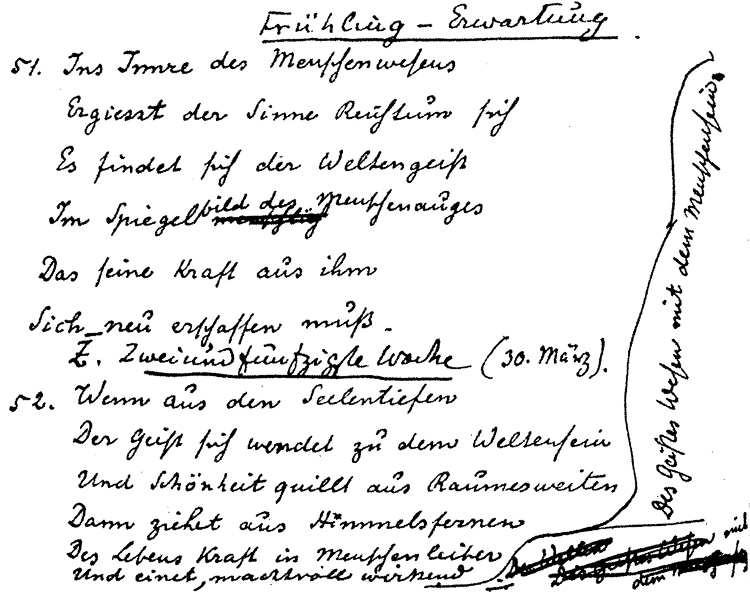 Frühling – Erwartung
51. Ins Innre des Menschenwesens
Ergiesst der Sinne Reichtum sich
Es findet sich der Weltengeist
Im Spiegelbild des Menschenauges
Das seine Kraft aus ihm
Sich neu erschaffen muß.
Z. Zweiundfünfzigste Woche (30. März).
52. Wenn aus den Seelentiefen
Der Geist sich wendet zu dem Weltensein
Und Schönheit quillt aus Raumesweiten
Dann ziehet aus Himmelsfernen
Des Lebens Kraft in Menschenleiber
Und einet, machtvoll wirkend
Des Geistes Wesen mit dem Menschensein.
Des Geistes Wesen mit
dem